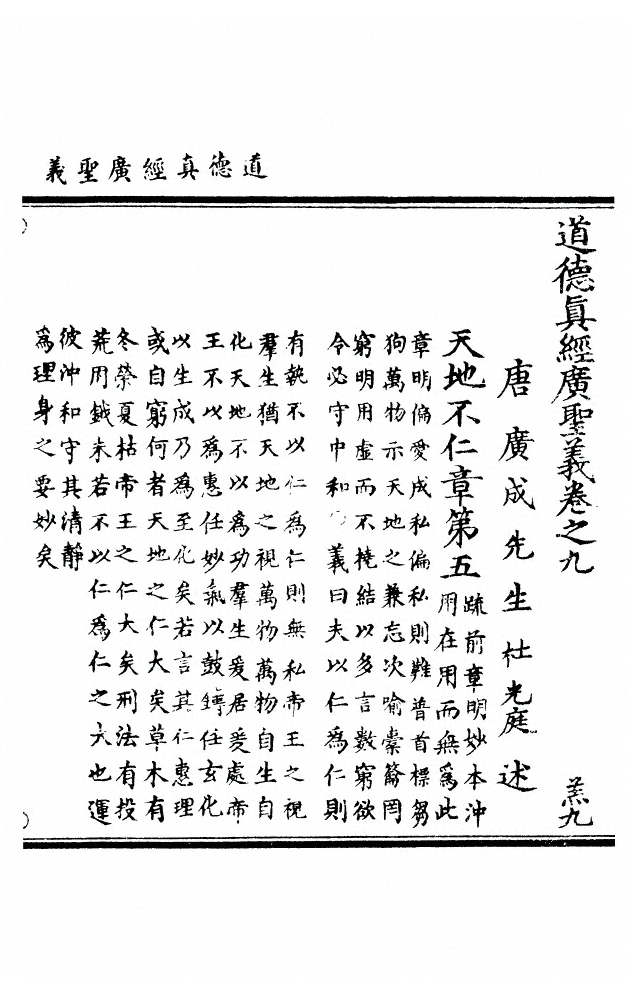 道德真經廣聖義
道德眞經廣聖義卷之九
羔九
唐廣成先生杜光庭述
天地不仁章第五
疏前章明妙本沖
用在用而無爲此
章明偏愛成私偏私則難普首標芻
狗萬物示天地之兼忘次喻橐籥罔
窮明用虛而不撓結以多言數窮欲
令必守中和 義曰夫以仁爲仁則
有執不以仁爲仁則無私帝王之視
羣生猶天地之視萬物萬物自生自
化天地不以爲功羣生爰居爰處帝
王不以爲惠任妙氣以鼓鑄任玄化
以生成乃爲至化矣若言其仁惠理
或自窮何者天地之仁大矣草木有
冬榮夏枯帝王之仁大矣刑法有投
荒用鉞未若不以仁爲仁之大也運
彼沖和守其清靜
爲理身之要妙矣